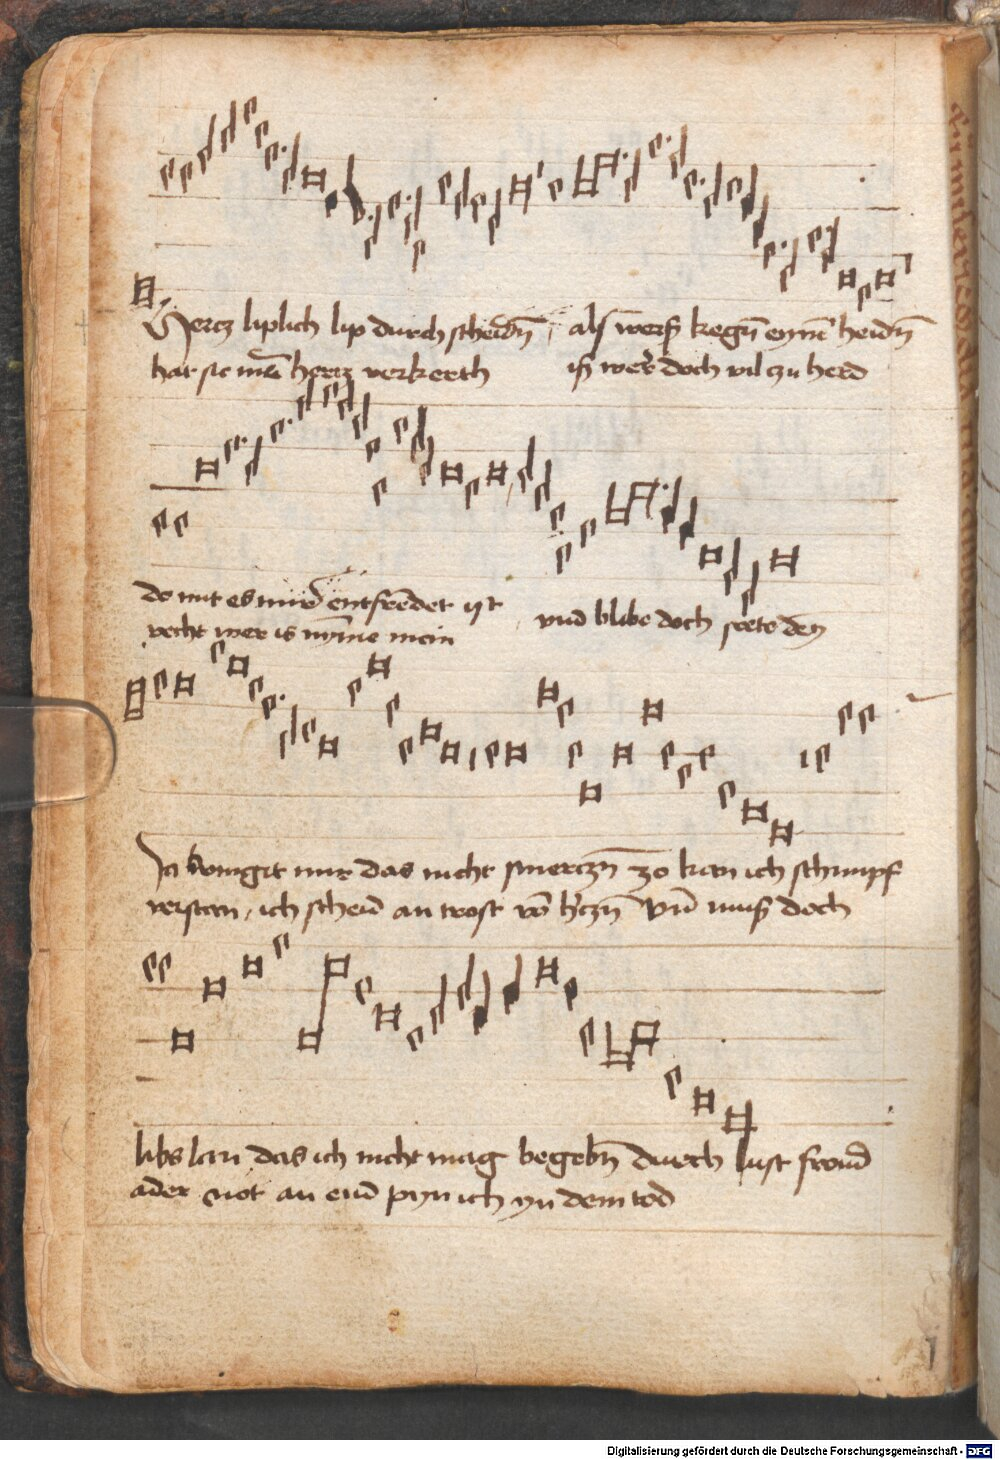 Hercz liplich lip durch scheidn̄ alsz wersz kegn̄ eynē heidn̄
hat sie mein hertz verkerth isz wer doch vil czu herd
do mit es mir entfredet ist vnd blibe doch stete den̄
recht wer is nymme mein
Ja komgit mir das nicht smerczn̄ zo kan ich schimpf
verstan, ich scheid an trost vō h'czn̄ Vn̄ musz doch
libs lan das ich nicht mag begebn̄ durch lust froud
ader not an eid pyn ich yn dem tod
Digitalisierung gefördert durch die Deutsche Forschungsgemeinschaft - DFG